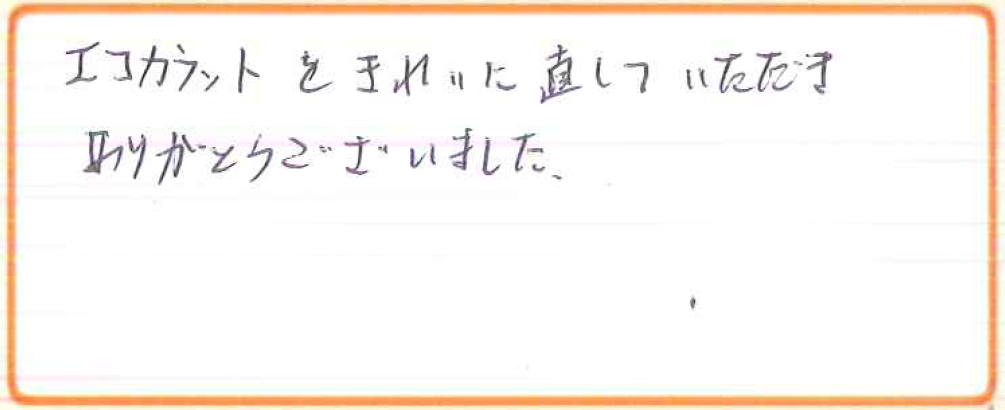 エコカラットをきれいに直していただき
ありがとうございました。